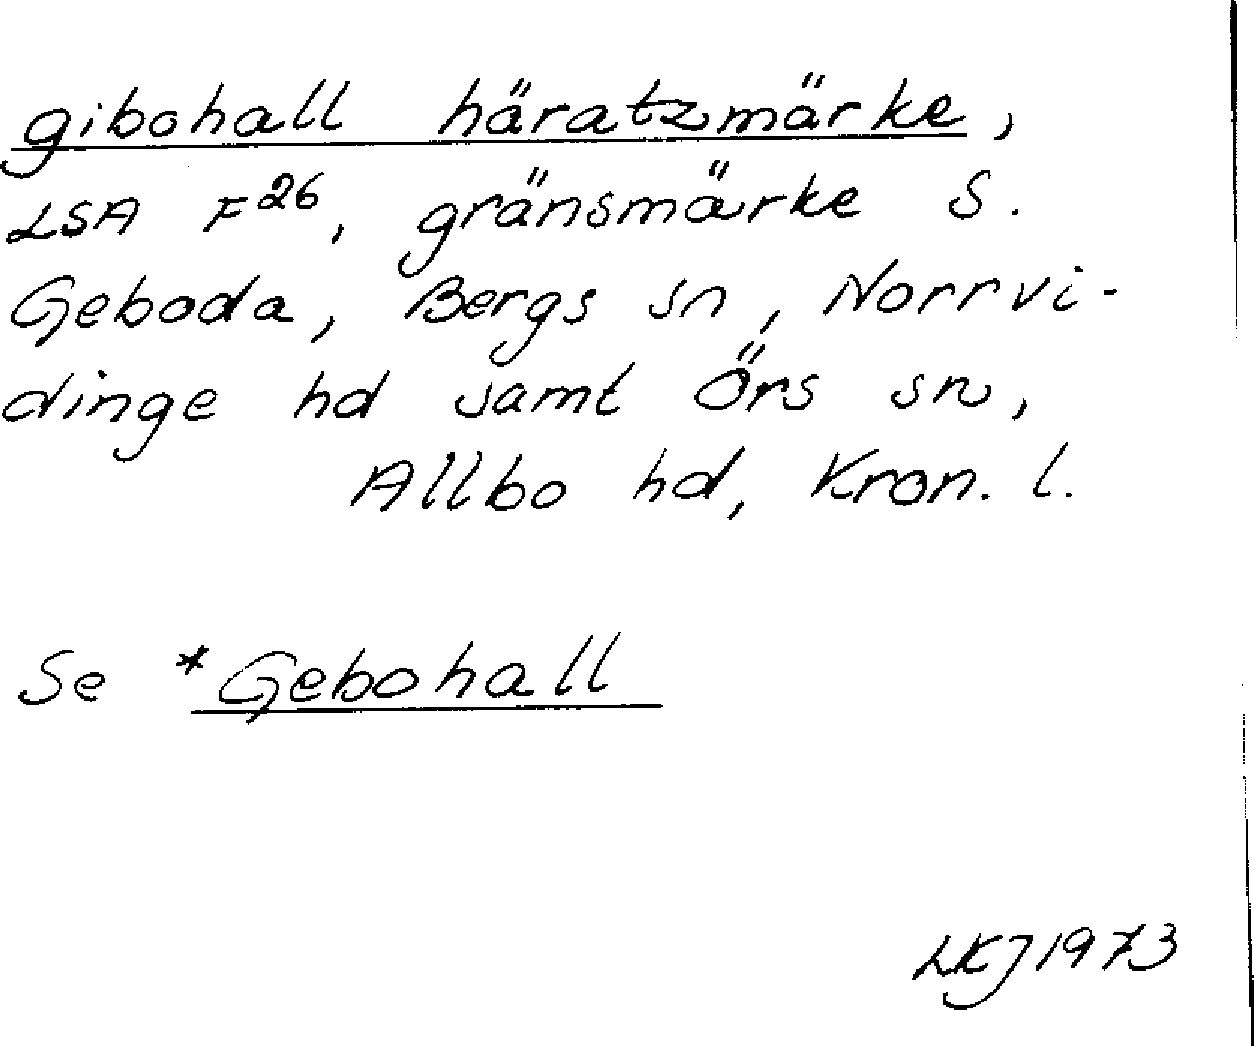 gibohall häratzmärke,
LSA F26, gränsmärke S.
Geboda, Bergs sn, Norrvi-
dinge hd samt Örs sn,
Allbo hd, Kron. l.
Se *Gebohall
LKJ 1973